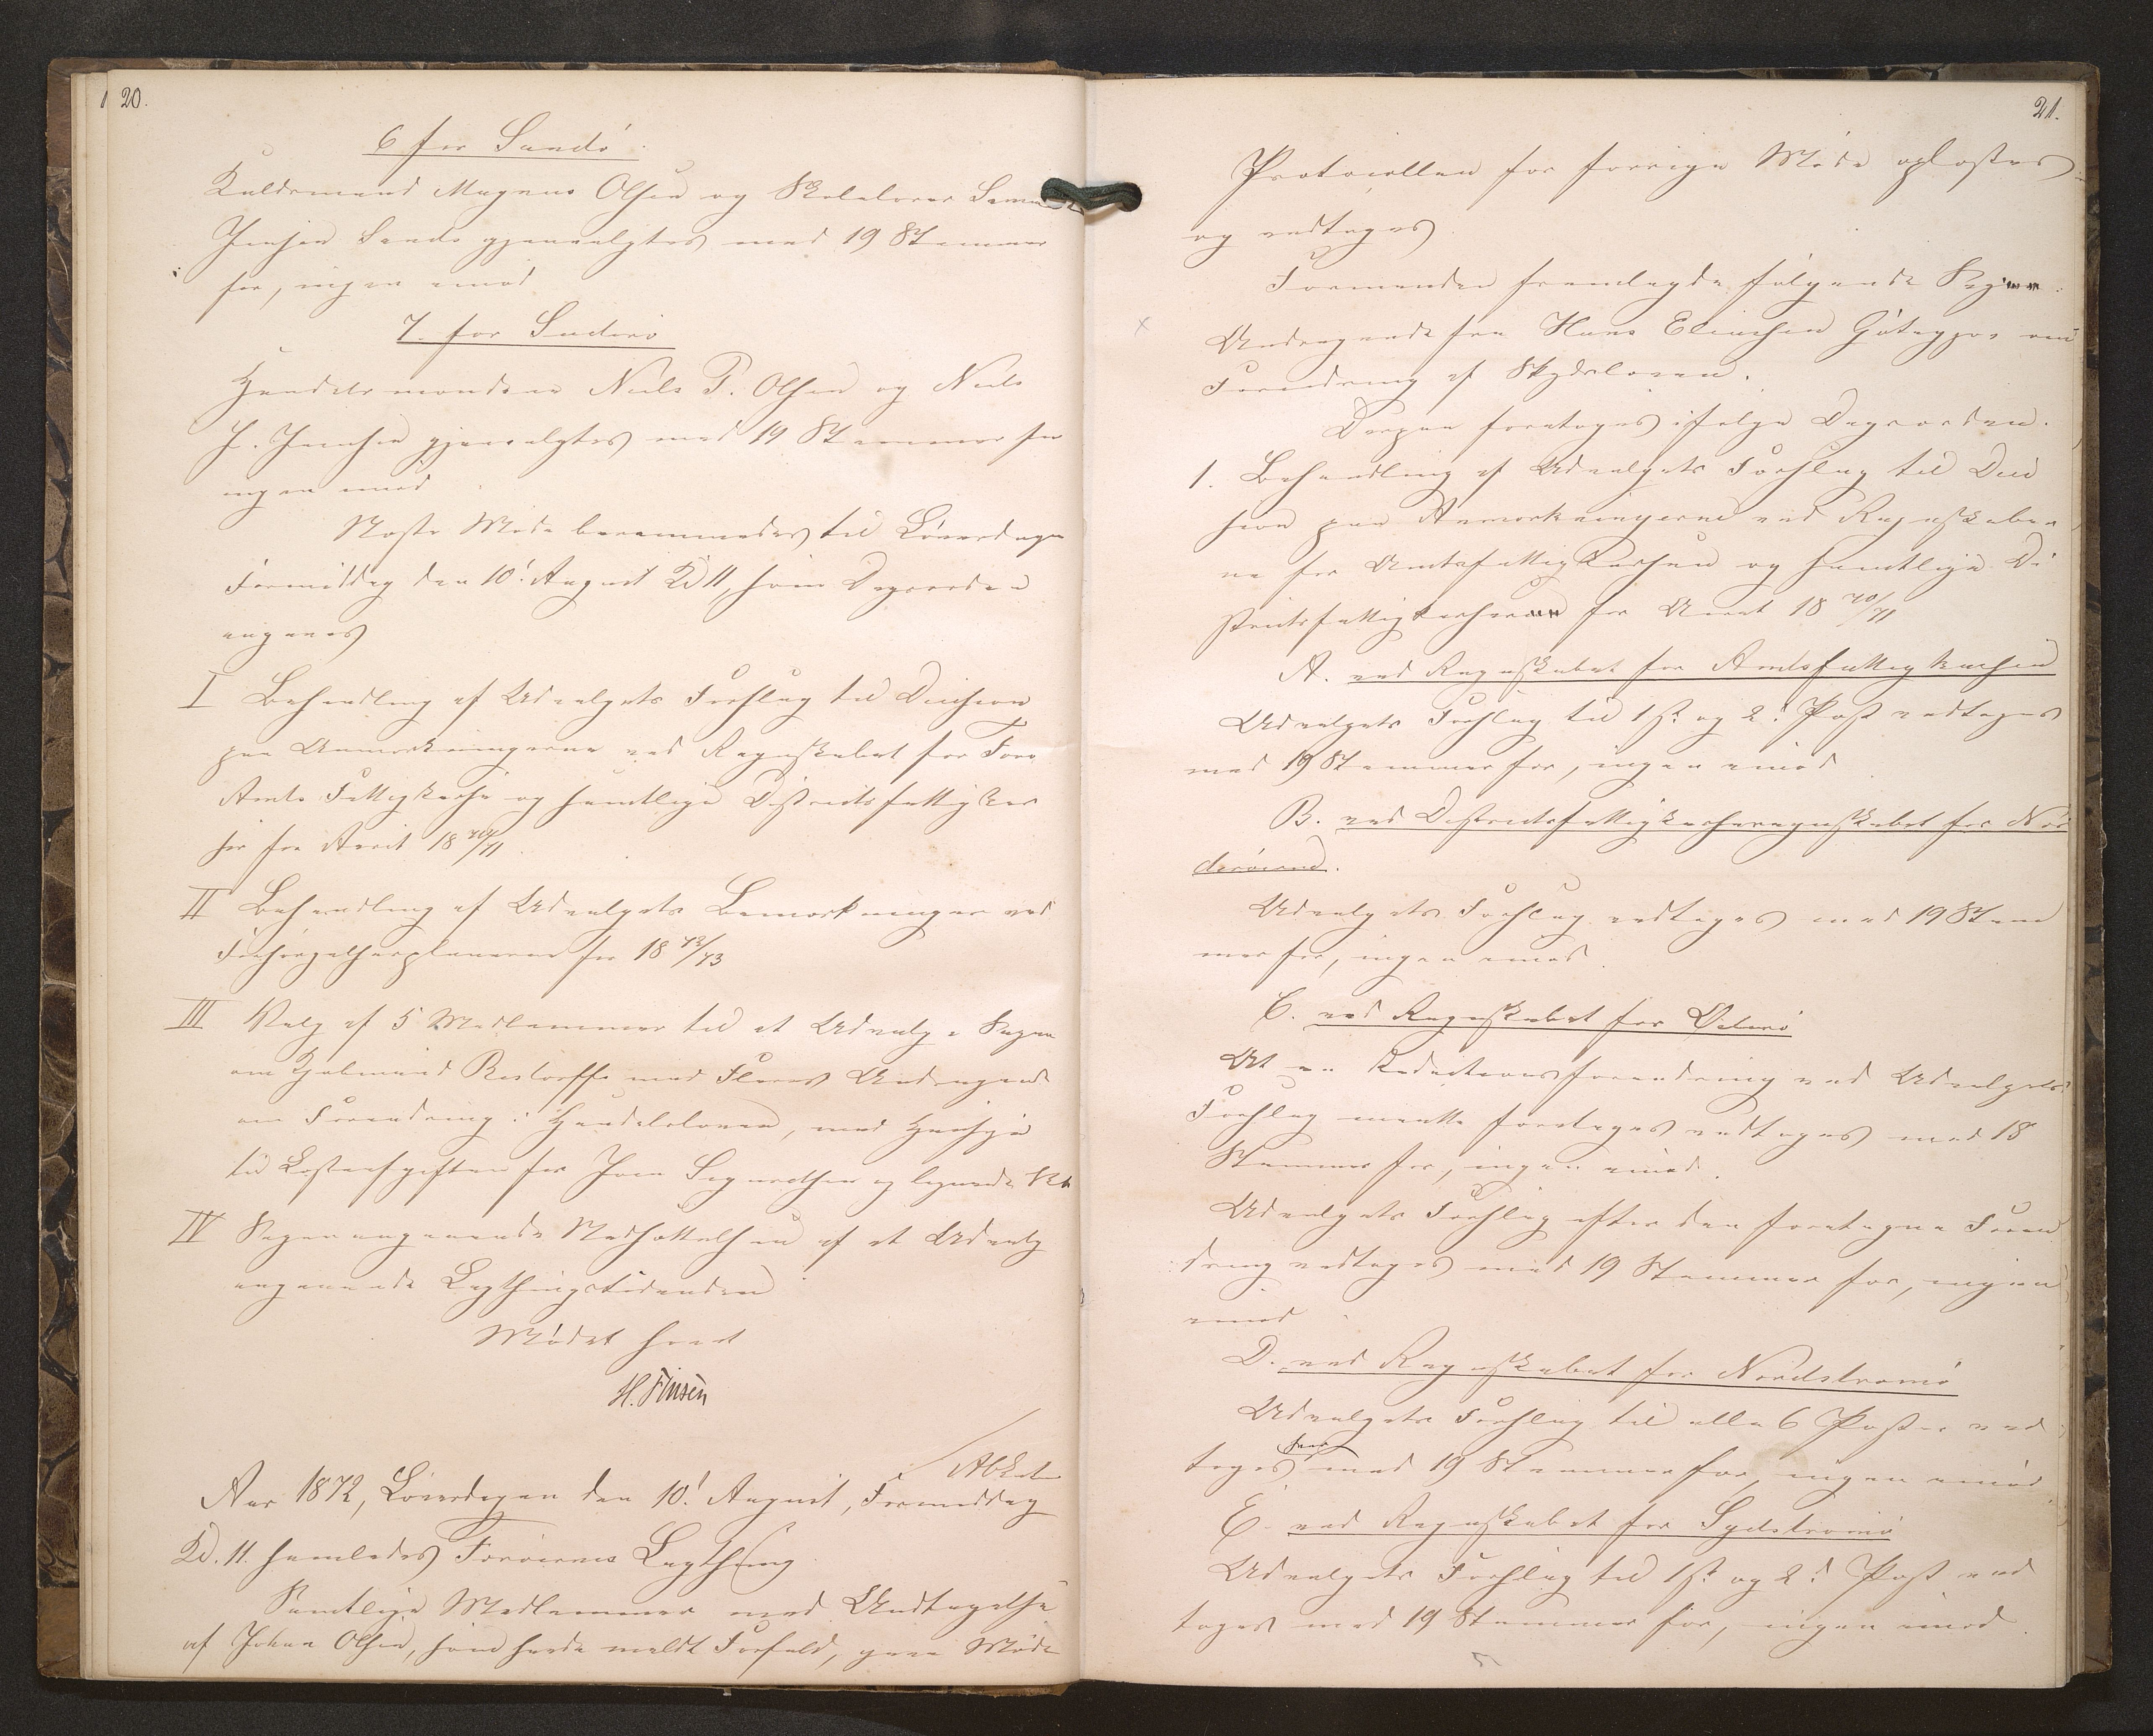 20.
6 for Sandö.
Kuldsmand Magnus Olsen og Skolelærer
Jensen Sands gjenvalgtes med 19 Stemmer
for, ingen imod
7. for Suderö
Handelsmændene Niels P. Olsen og Niels
J. Jensen gjenvalgtes med 19 Stemmer for
ingen imod.
Næste Møde berammedes til Løverdagen
Formiddag den 10d August Kl 11, som Dagsorden
angaves
I Behandling af Udvalgets Forslag til Decision
paa Anmærkningerne ved Regnskabet for Færø
Amts Fattigkasse og samtlige Districtsfattigkas
ser for Aaret 1870/71.
II Behandling af Udvalgets Bemærkninger ved
Forsørgelsesplanerne for 1872/73
III Valg af 5 Medlemmer til et Udvalg i Sagen
om Kjøbmand Restorffs med Fleres Andragende
om Forandring i Handelsloven, med Hensyn
til Lasteafgiften for Jern og lignende
IV Sagen angaaende Nedsættelsen af et Udvalg
angaaende Lagthingstidenden
Mødet hævet
H. Finsen
Aar 1872, Løverdagen den 10d August, Formiddag
Kl. 11. samledes Færøernes Lagthing
Samtlige Medlemmer med Undtagelse
af Johan Olsen, som havde meldt Forfald, gave Møde
21.
Protocollen for forrige Møde oplæstes
og vedtoges.
Formanden fremlagde følgende Sager:
Andragende fra Hans Eliasen Gøtegjov om
Forandring af Skydsloven.
Derpaa foretoges ifølge Dagsorden.
1. Behandling af Udvalgets Forslag til Deci
sion paa Anmærkningerne ved Regnskaber
ne for Amtsfattigkassen og samtlige Di
strictsfattigkasser for Aaret 1870/71
A. ved Regnskabet for Amtsfattigkassen
Udvalgets Forslag til 1ste og 2d Post vedtoges
med 19 Stemmer for, ingen imod
B. ved Districtsfattigkasseregnskabet for Nor
derøerne.
Udvalgets Forslag vedtoges med 19 Stem
mer for, ingen imod.
C. ved Regnskabet for Østerö
At en Redactionsforandring ved Udvalgets
Forslag maatte foretages vedtoges med 18
Stemmer for, ingen imod.
Udvalgets Forslag efter den foretagne Foran
dring vedtoges med 19 Stemmer for, ingen
imod.
D. ved Regnskabet for Nordstrømö
Udvalgets Forslag til alle 6 Poster ved
toges med 19 Stemmer for, ingen imod
E. ved Regnskabet for Sydströmö
Udvalgets Forslag til 1ste og 2d Post ved
toges med 19 Stemmer for, ingen imod.